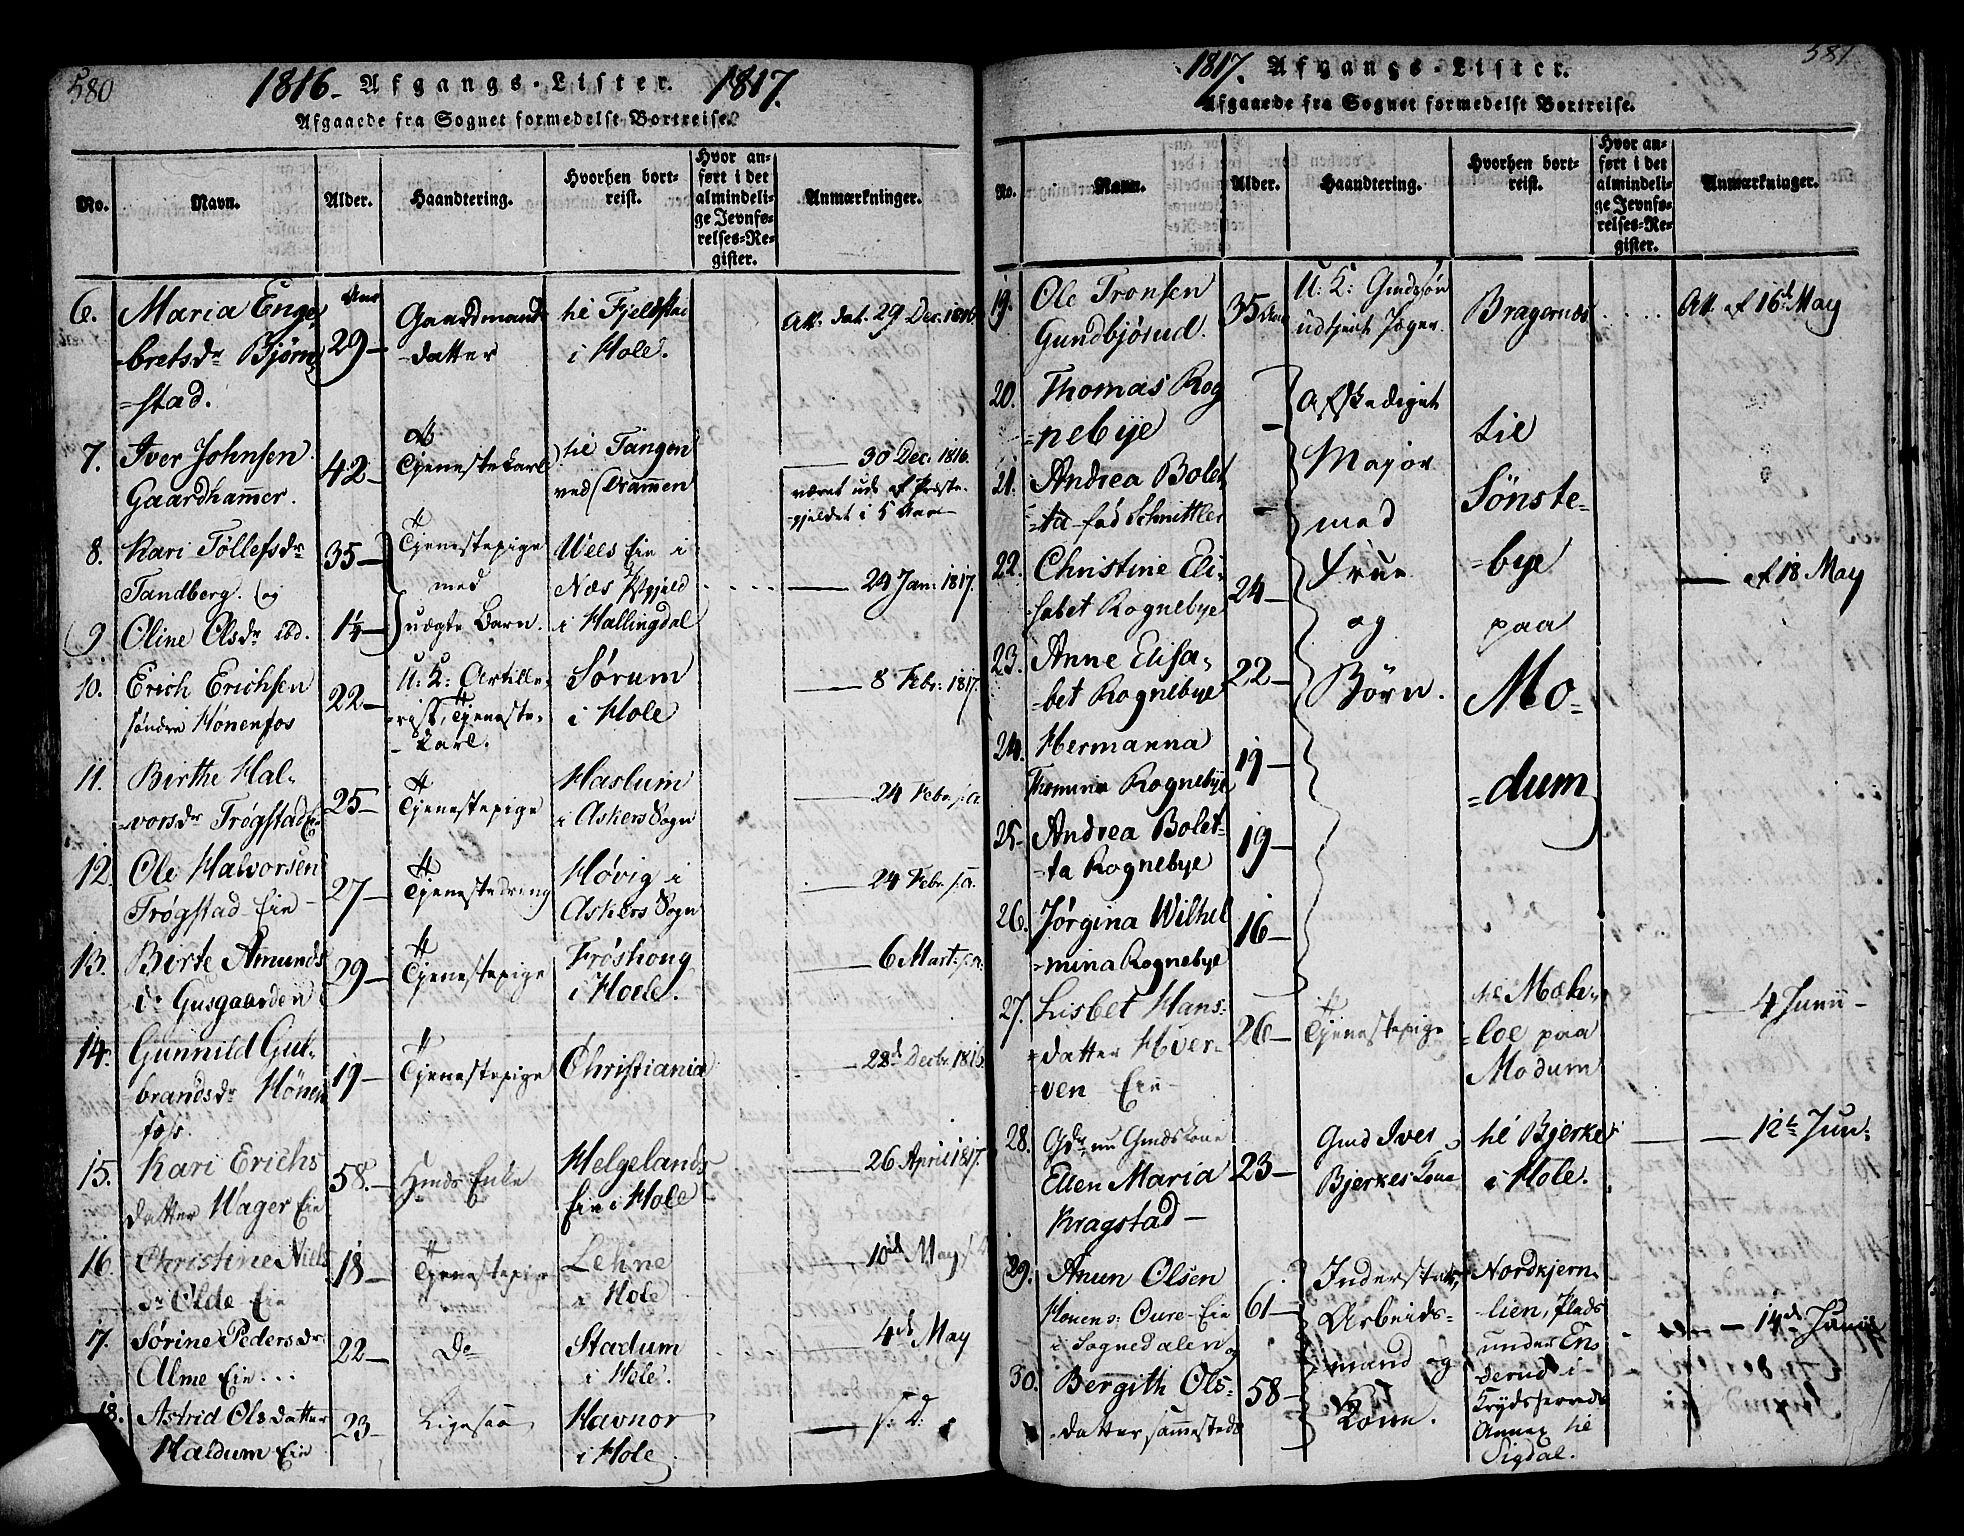 580
1816 - Afgangs-Lister. 1817.
Afgaaede fra Sognet formedelst Bortreise.
No.
Navn.
Alder.
Haandtering.
Hvorhen bort-
reist.
Hvor an-
ført i det
almindeli-
ge Jevnfø-
relses-Re-
gister.
Anmærkninger.
6. Maria Enge,
-bretsdr Bjørn,
=stad.
Aar
29-
Gaardmands
-datter
til Fjeldstad
i Hole.
Att. dat. 29 Dec. 1816
7. Iver Johnsen
Gaardhammer.
42-
Tjenestekarl
til Tangen
ved Drammen
30 Dec. 1816.
været ude af Præste-
gjeldet i 5 Aar-
8. Kari Töllefsdr
Tandberg. og
35-
Tjenestepige
med
Wees Eie i
Næs Pgjeld
24 Jan: 1817.
9 Oline Olsdr ibd.
1¼-
uægte Barn.
i Hallingdal
10. Erich Erichsen
söndre Hönenfos
22-
U: K: Artille-
rist, Tjeneste-
-karl.
Sørum
i Hole
8 Febr: 1817.
11. Birthe Hal-
=vorsdr Trøgstad
25-
Tjenestepige
Haslum
i Askers Sogn
24 Febr. s: a.
12. Ole Halvorsen
Trøgstad Eie-
27-
Tjenestedreng
Høvig i
Askers Sogn
24 Febr. s: a.
13. Berte Amunds
dr Gusgaarden
29-
Tjenestepige
Frøshoug
i Hole.
6 Mart: s: a:
14. Gunnild Gul-
brandsdr Hönen
foss.
19-
Tjenestepige
Christiania
28d Decbr. 1816.
15. Kari Erichs
datter Wager Eie
58.-
Hmds Enke
Helgelands
Eie i Hole
26 April 1817.
16 Christine Niels
dr Ölde Eie
18-
Tjenestepige
Lehne
i Hole
10d May s. a.
17. Sørine Pedersdr
Alme Eie...
22-
Do
Stadum
i Hole.
4d May
18. Astrid Olsdatter
Haldum Eie
23-
Ligesaa
Havnor
i Hole
s. d:
581
1817. Afgangs-Lister.
Afgaaede fra Sognet formedelst Bortreise.
No.
Navn.
Alder.
Haandtering.
Hvorhen bort-
reist.
Hvor an-
ført i det
almindeli-
ge Jevnfø-
relses-Re-
gister.
Anmærkninger.
19. Ole Tronsen
Gundbjørud.
35 Aar
U: K: Gmdssön
udtjent Jæger.
Bragernæs
Att. af 16d May
20. Thomas Rog
=nebye
-
Afskediget
Major
med
Frue
og
Börn.
til
Sönste-
=bye
paa
Mo-
=dum
21. Andrea Bolet
=ta fød Schnittler
-
22. Christine Eli-
=sabet Rognebye
24-
af 18 May
23. Anne Elisa-
bet Rognebye
22-
24. Hermanna
Thomine Rognebye
19-
25. Andrea Bolet-
-ta Rognebye
19-
26. Jørgina Wilhel
-mina Rognebye
16-
27. Lisbet Hans-
datter Hver-
=ven Eie-
26-
Tjenestepige
til Mæh-
=loe paa
Modum
4 Junii-
28. Gdr nu Gmdskone
Ellen Maria
Kragstad-
23-
Gmd Iver
Bjerkes Kone
til Bjerke
i Hole.
12te Jun:
29. Anun Olsen
Honens: Oure Eie
i Sognedalen og
61-
Inderst &
Arbeids-
mand og
Nordkjern
lien, Plads
under En-
derud i
14de Junii
30. Bergith Ols-
-datter sammesteds
58-
Kone.
Krydsherreds
Annex til
Sigdal.